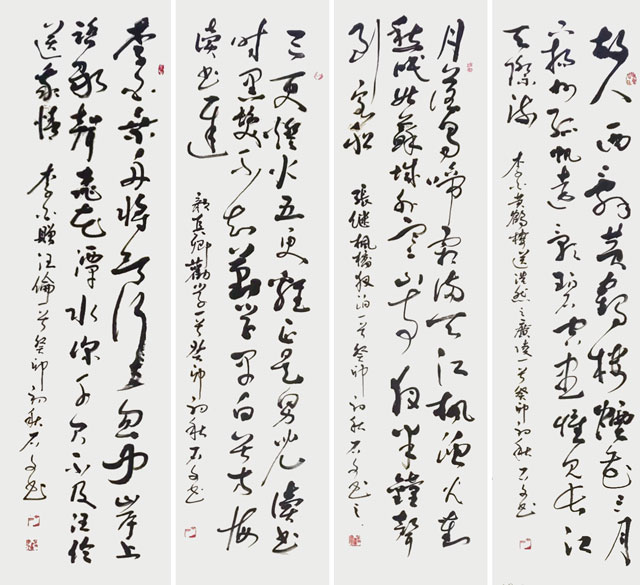 故人西辭黄鶴樓煙花三月
下揚州孤帆遠影碧空盡惟見長江
天際流
李白黄鶴樓送浩然之廣陵一首癸卯初秋石文书
月落烏啼霜滿天江楓漁火對
愁眠姑蘇城外寒山寺夜半鐘聲
到客船
張继楓橋夜泊一首癸卯初秋石文书之
三更燈火五更雞正是男兒讀书
时黑髮不知勤学早白首方悔
讀书遲
顏真卿勸学一首癸卯初秋石文书
李白乘舟將欲行忽闻岸上
踏歌聲桃花潭水深千尺不及汪倫
送我情
李白贈汪倫一首癸卯初秋石文书